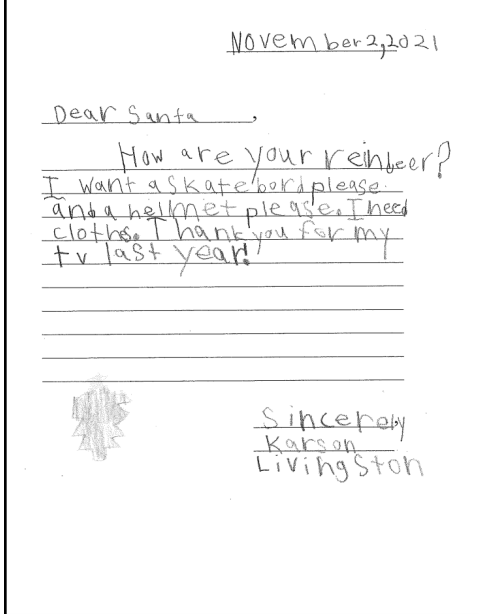 November 2, 2021
Dear Santa,
How are your reinbeer?
I want a skatebord please
and a hellmet please. I need
cloths. Thank you for my
tv last year!
Sincerely
Karson
Livingston